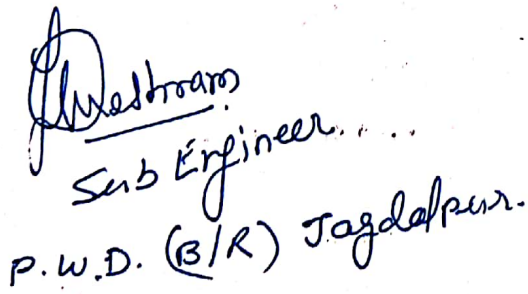 Sub Engineer....
P.W.D. (B/R) Jagdalpur.